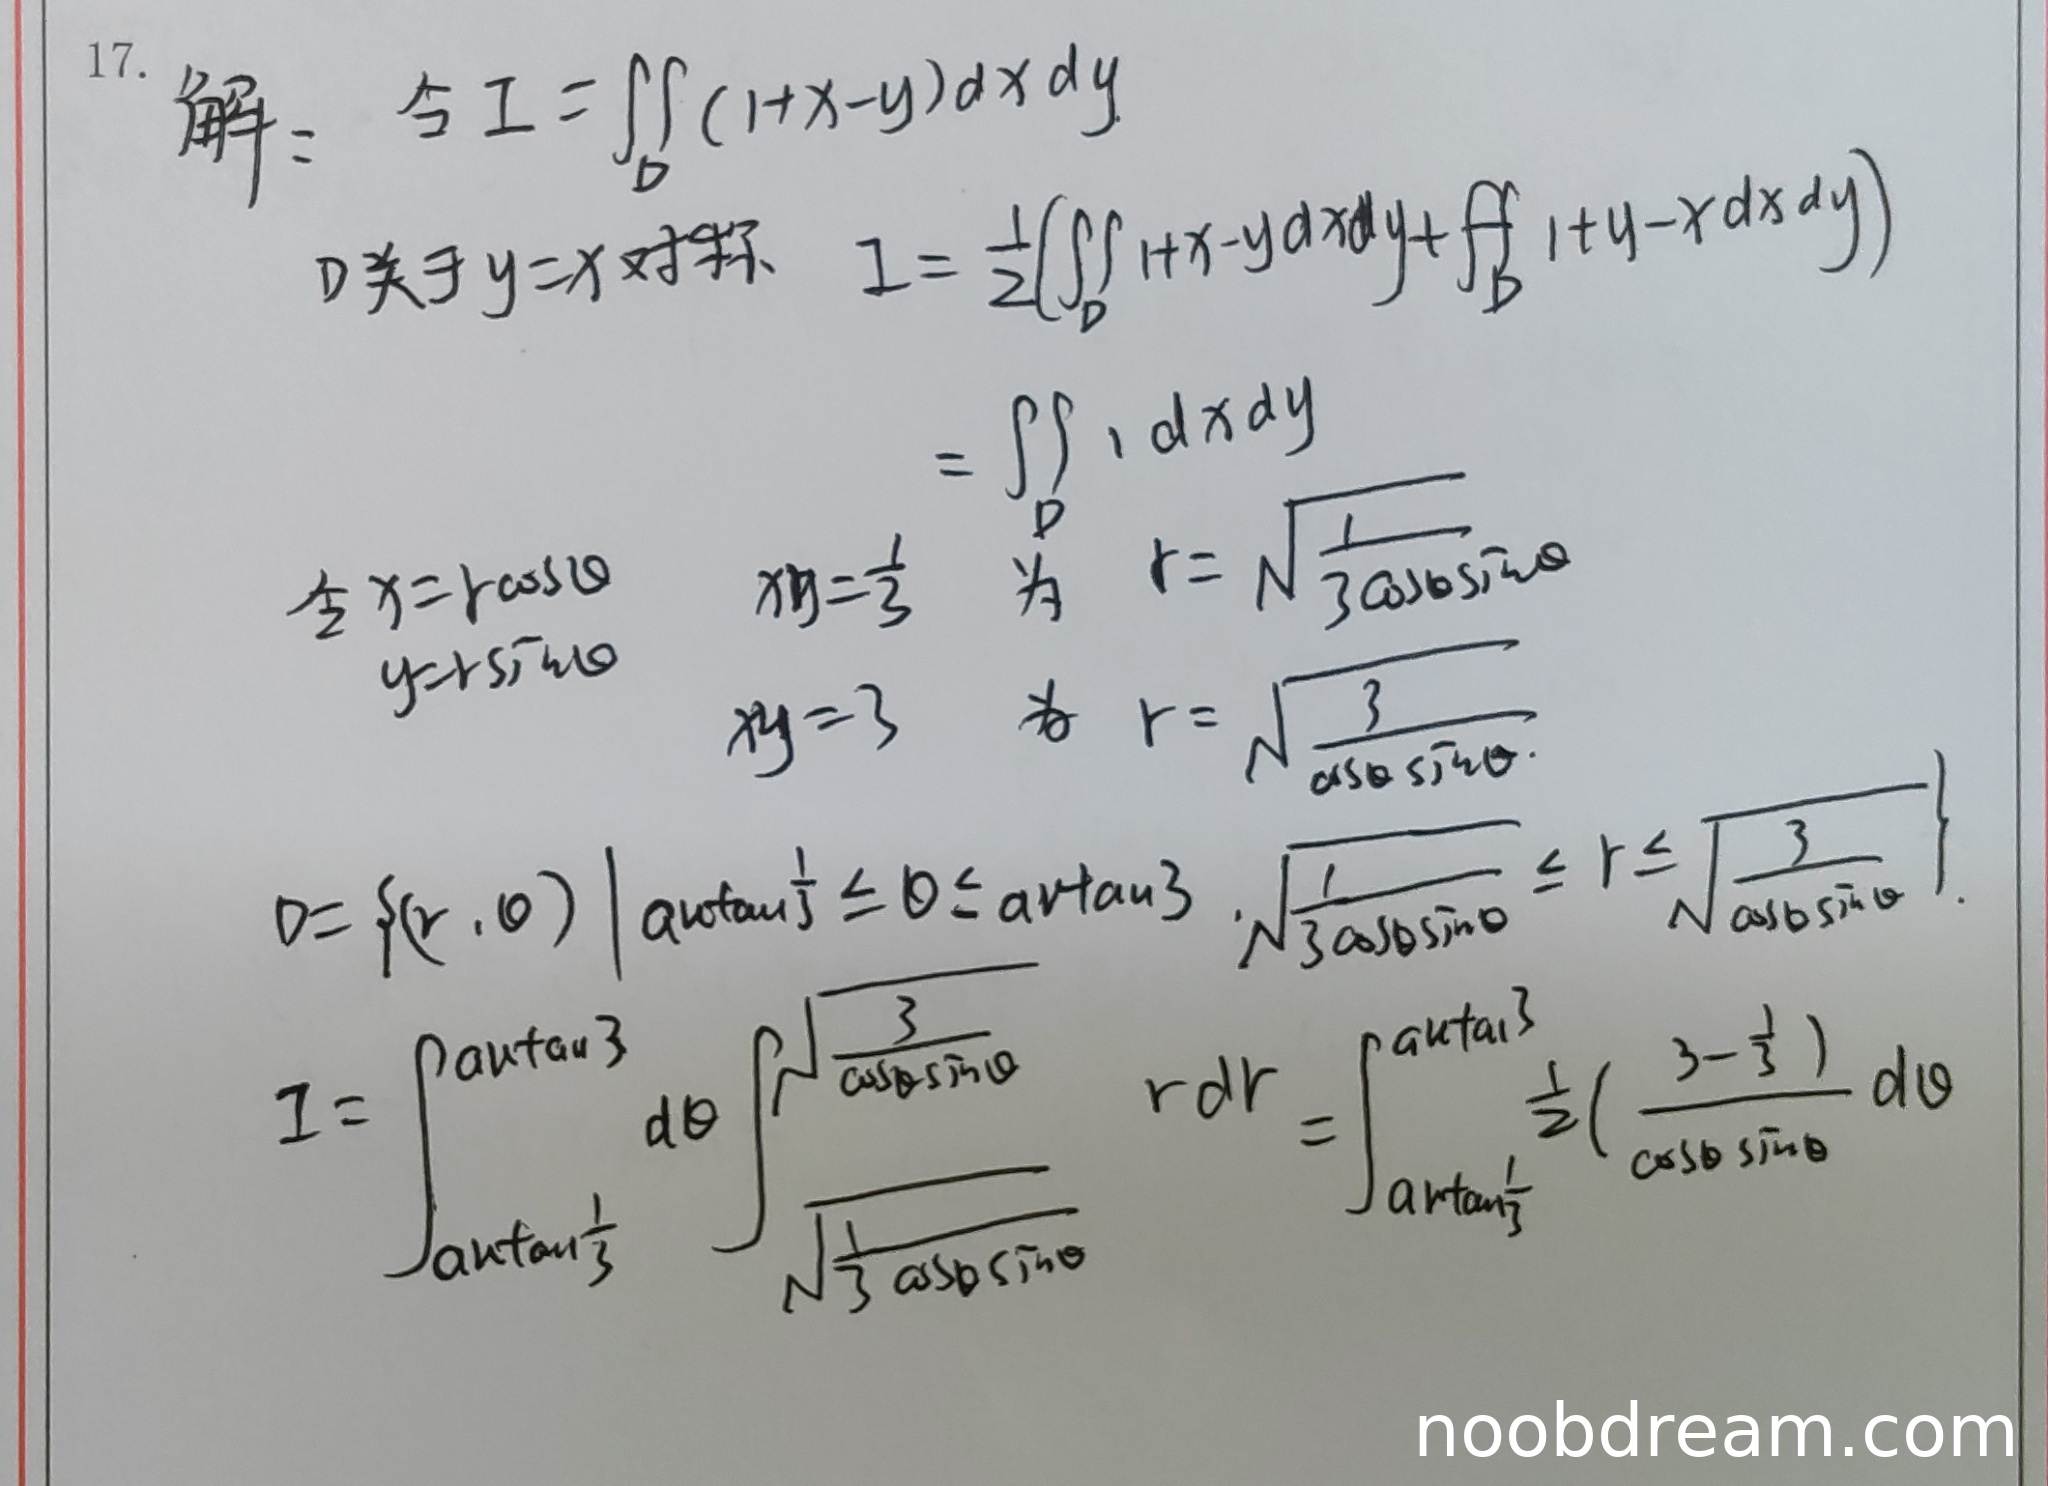 17.
解: 令 I = ∬_D (1+x-y)dxdy
D关于y=x对称 I = 1/2(∬_D 1+x-ydxdy + ∬_D 1+y-xdxdy)
= ∬_D 1 dxdy
令 x=rcosθ xy=1/3 为 r=√(1/(3cosθsinθ))
y=rsinθ
xy=3 为 r=√(3/(cosθsinθ)).
D={(r,θ) | arctan1/3 ≤ θ ≤ artan3 , √(1/(3cosθsinθ)) ≤ r ≤ √(3/(cosθsinθ)) }.
I = ∫_{arctan1/3}^{arctan3} dθ ∫_{√(1/(3cosθsinθ))}^{√(3/(cosθsinθ))} rdr = ∫_{artan1/3}^{arctan3} 1/2((3-1/3)/(cosθsinθ)) dθ
noobdream.com